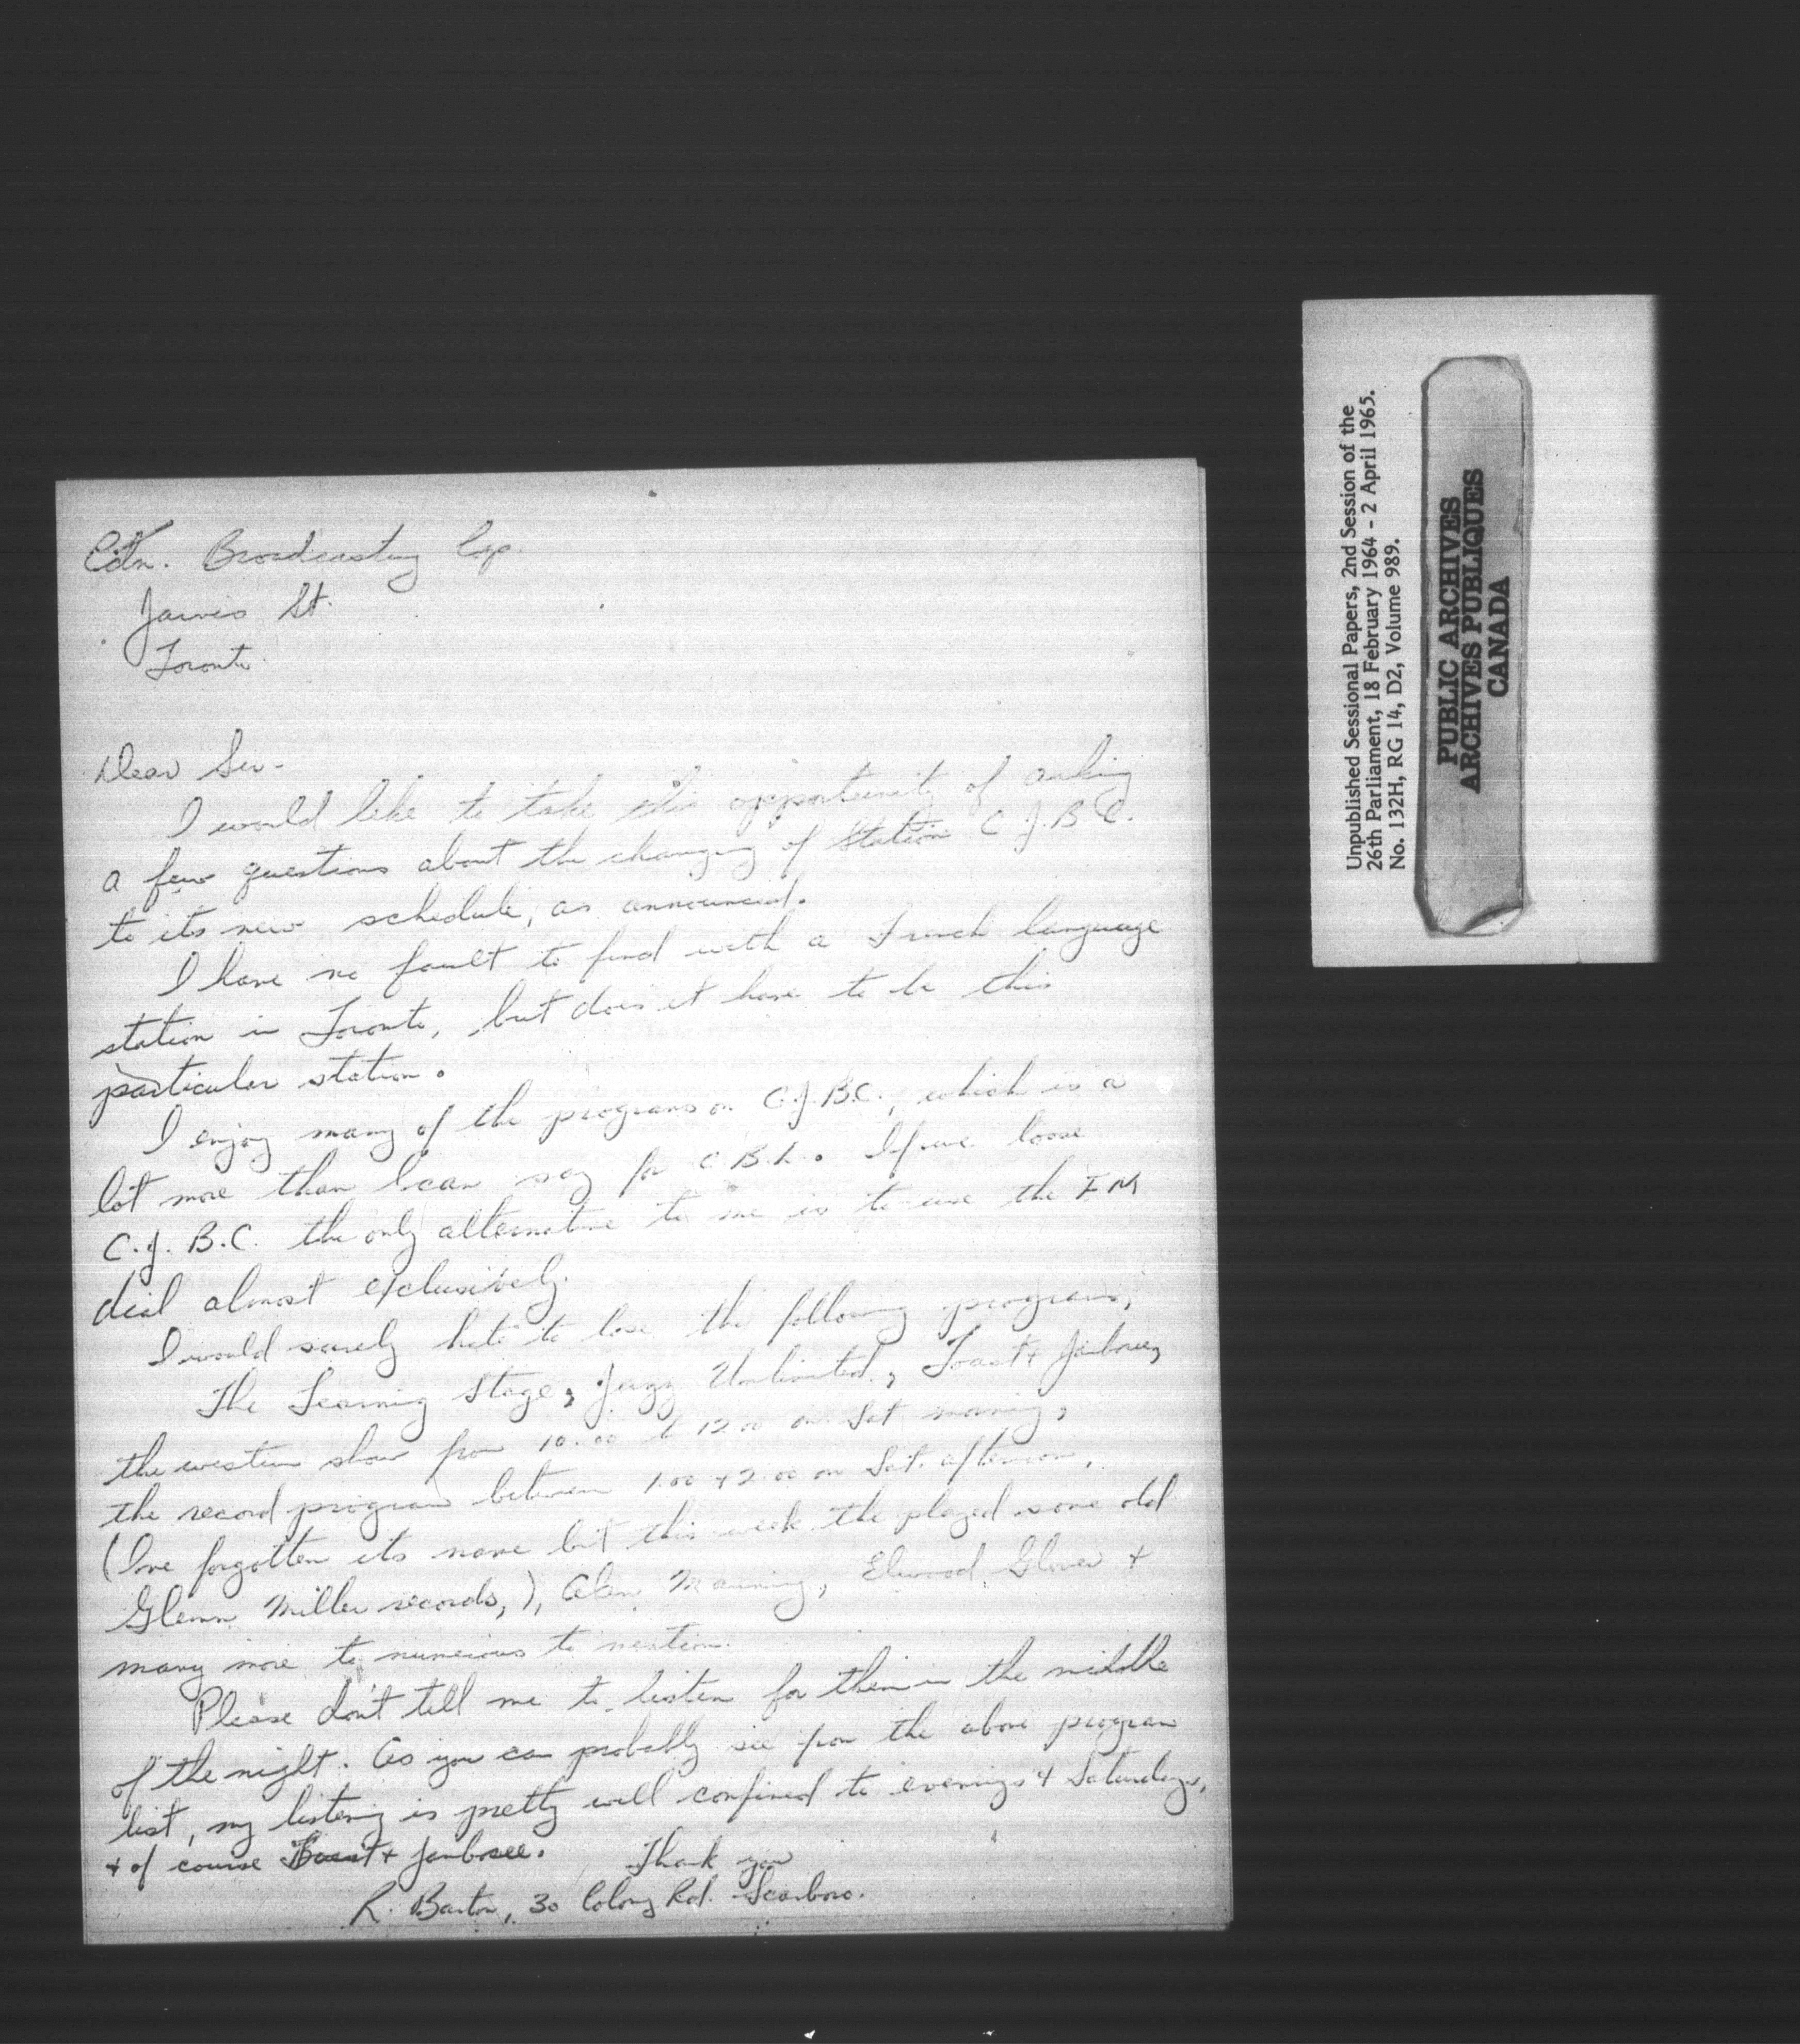 Cdn. Broadcasting Corp.
Jarvis St.
Toronto
Dear Sir-
I would like to take this opportunity of asking
a few questions about the changing of Station C.J.B.C.
to its new schedule, as announced.
I have no fault to find with a French language
station in Toronto, but does it have to be this
particular station.
I enjoy many of the programs on C.J.B.C., which is a
lot more than I can say for C.B.L. If we loose
C.J.B.C. the only alternative to me is to use the FM
dial almost exclusively.
I would surely hate to lose the following programs,
The Learning Stage, Jazz Unlimited, Toast & Jamboree,
the western show from 10.00 to 12.00 on Sat morning,
the record program between 1.00 & 2.00 on Sat. afternoon,
(Ive forgotten its name but this week the played some old
Glenn Miller records,), Alan Manning, Elwood Glover &
many more to numerous to mention.
Please don't tell me to listen for them in the middle
of the night. As you can probably see from the above program
list, my listening is pretty well confined to evenings & Saturdays,
& of course Toast & Jamboree.
Thank you
R. Barton, 30 Colony Rd. Scarboro.
Unpublished Sessional Papers, 2nd Session of the
26th Parliament, 18 February 1964 - 2 April 1965.
No. 132H, RG 14, D2, Volume 989.
PUBLIC ARCHIVES
ARCHIVES PUBLIQUES
CANADA